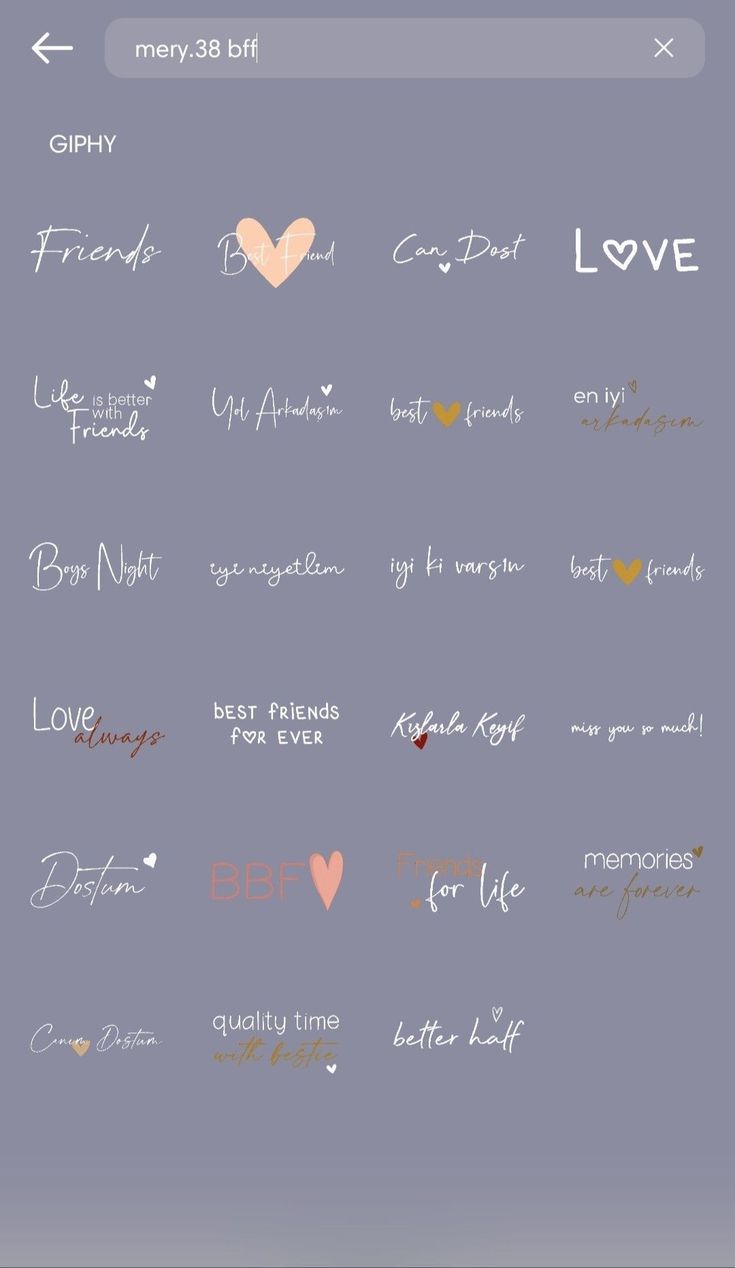 mery.38 bff
GIPHY
Friends
Best Friend
Can Dost
LOVE
Life is better
with
Friends
Yol Arkadaşım
best friends
en iyi
arkadaşım
Boys Night
iyi niyetlim
iyi ki varsın
best friends
Love
always
BEST FRIENDS
FOR EVER
Kızlarla Keyif
miss you so much!
Dostum
BBF
Friends
for life
memories
are forever
Canım Dostum
quality time
with bestie
better half